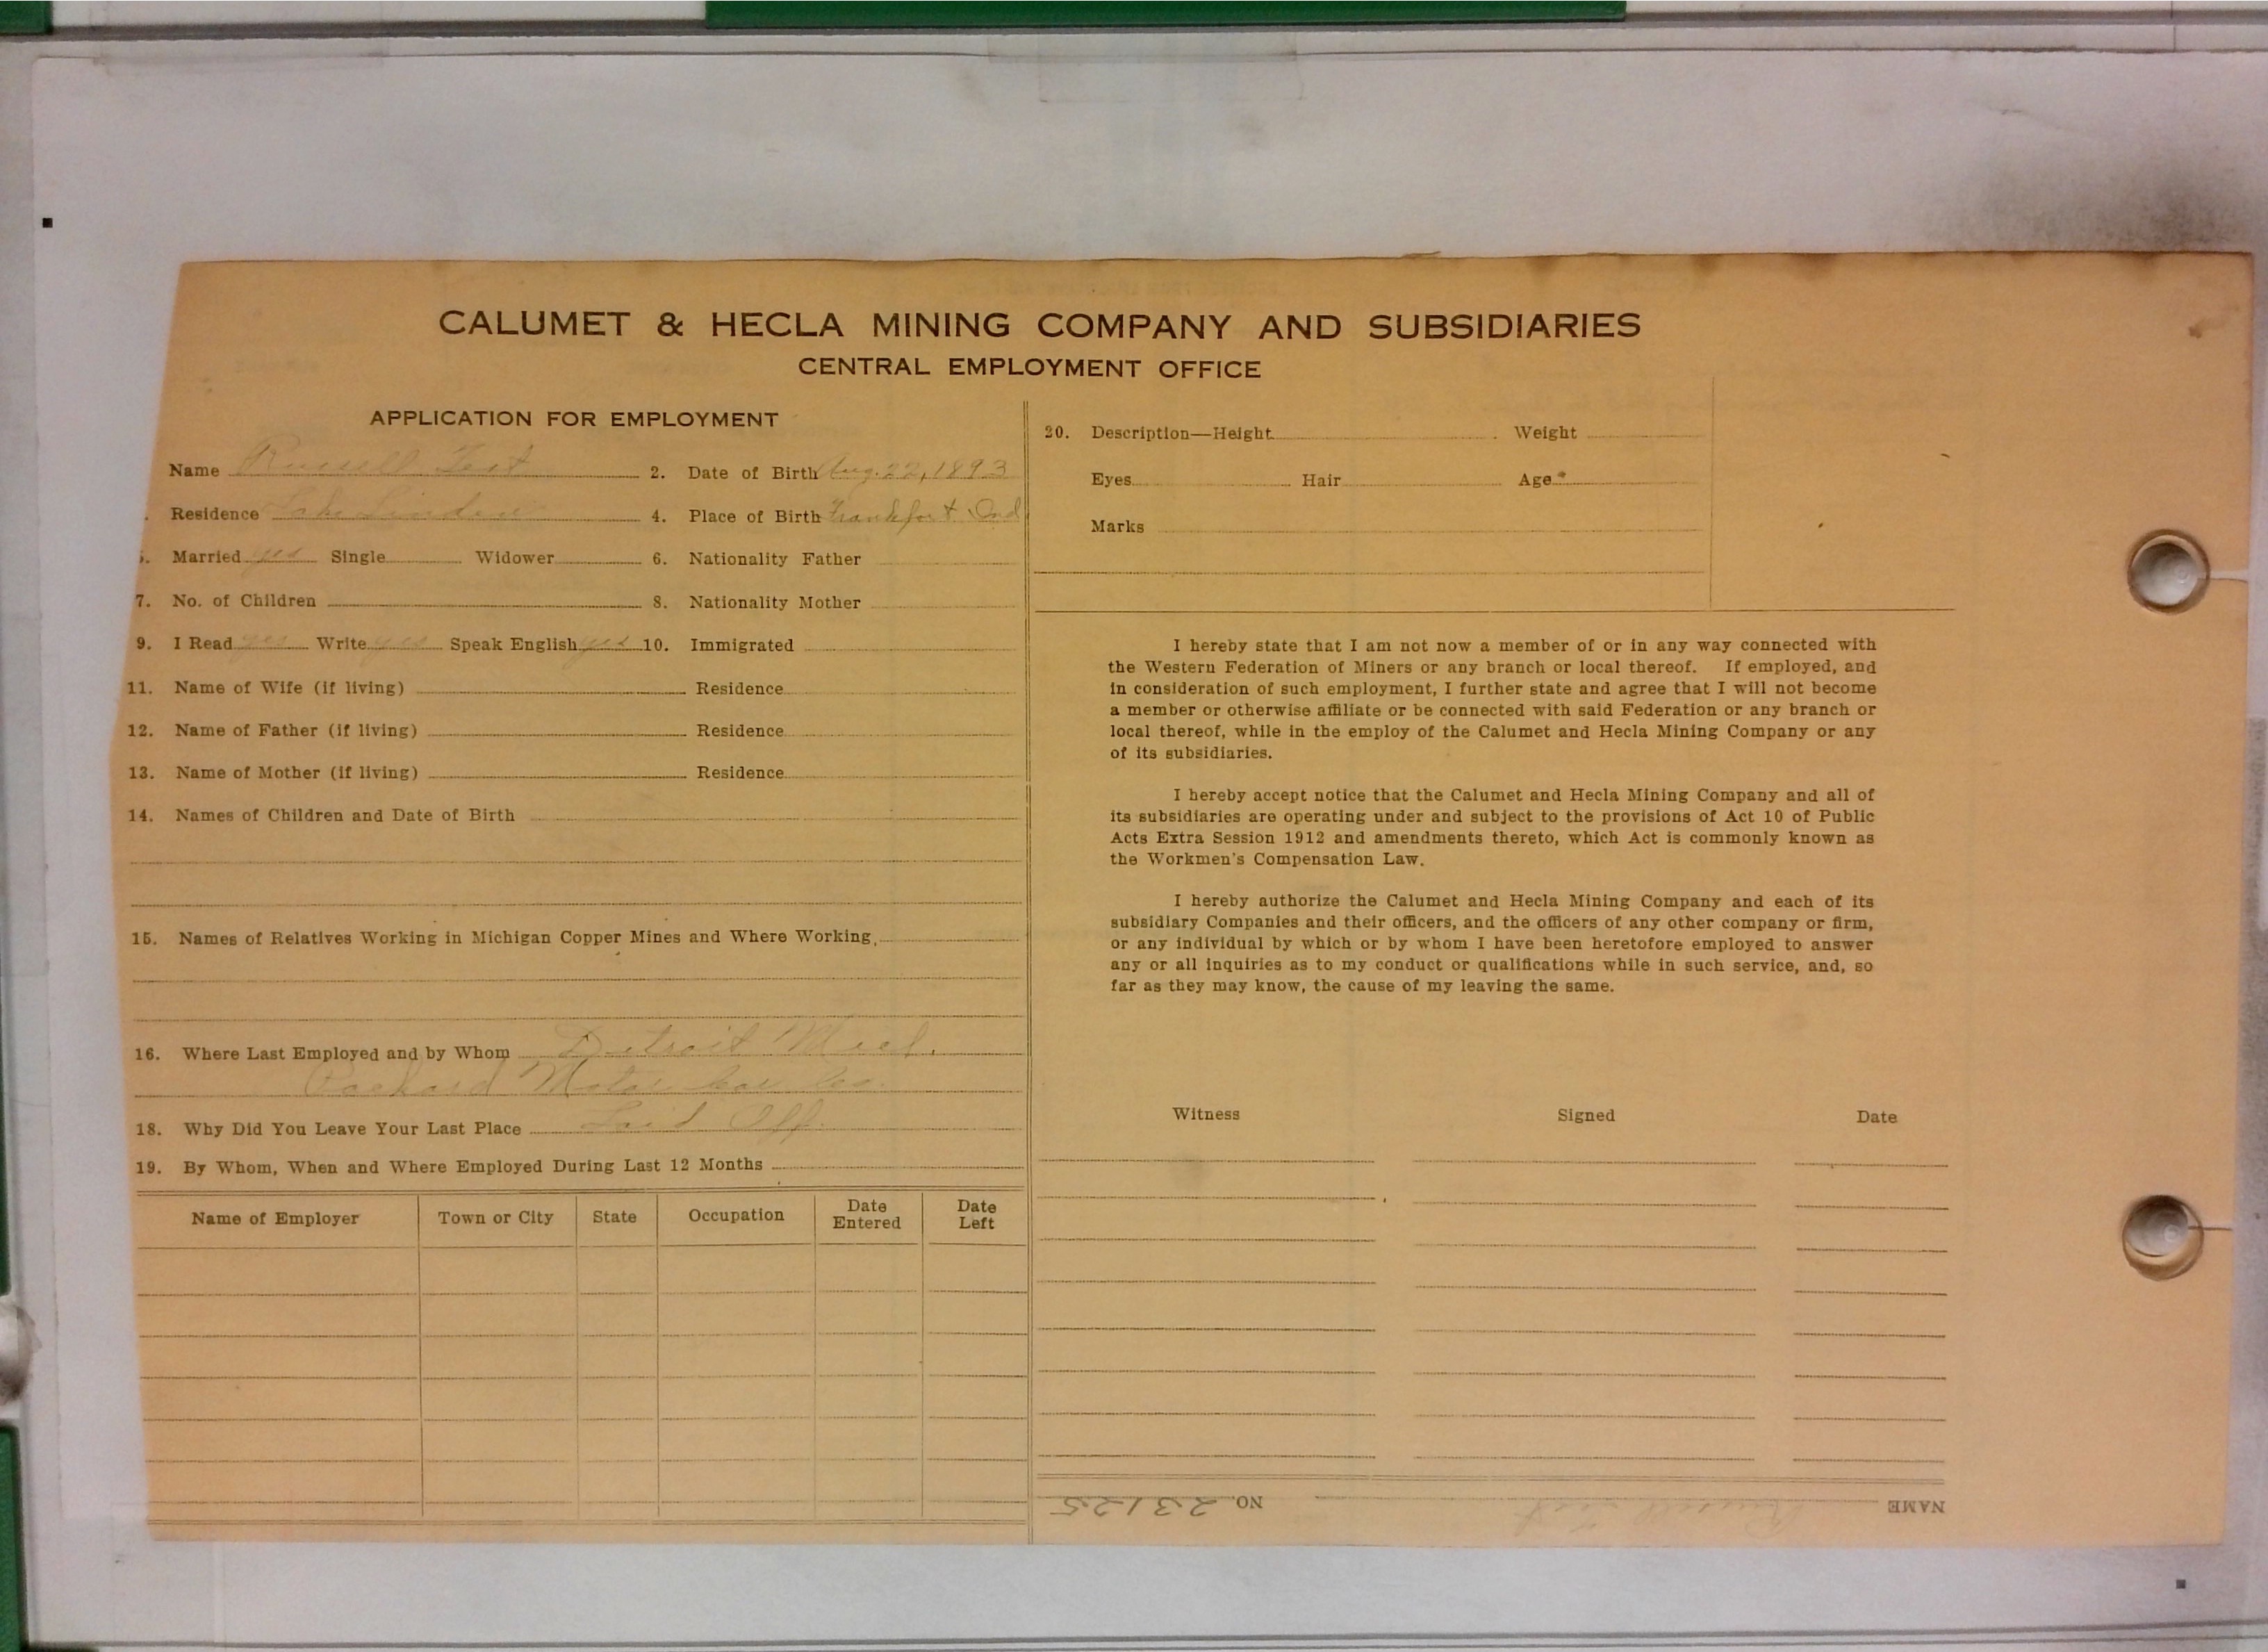 CALUMET & HECLA MINING COMPANY AND SUBSIDIARIES
CENTRAL EMPLOYMENT OFFICE
APPLICATION FOR EMPLOYMENT
Name Russell
2. Date of Birth Aug. 22, 1893
Residence Lake Linden
4. Place of Birth Frankfort Ind
5. Married yes Single Widower
6. Nationality Father
7. No. of Children
8. Nationality Mother
9. I Read yes Write yes Speak English yes 10. Immigrated
11. Name of Wife (if living) Residence
12. Name of Father (if living) Residence
13. Name of Mother (if living) Residence
14. Names of Children and Date of Birth
15. Names of Relatives Working in Michigan Copper Mines and Where Working,
16. Where Last Employed and by Whom Detroit Mich.
Packard Motor Car Co.
18. Why Did You Leave Your Last Place Laid Off.
19. By Whom, When and Where Employed During Last 12 Months
Name of Employer Town or City State Occupation Date Entered Date Left
20. Description—Height Weight
Eyes Hair Age
Marks
I hereby state that I am not now a member of or in any way connected with
the Western Federation of Miners or any branch or local thereof. If employed, and
in consideration of such employment, I further state and agree that I will not become
a member or otherwise affiliate or be connected with said Federation or any branch or
local thereof, while in the employ of the Calumet and Hecla Mining Company or any
of its subsidiaries.
I hereby accept notice that the Calumet and Hecla Mining Company and all of
its subsidiaries are operating under and subject to the provisions of Act 10 of Public
Acts Extra Session 1912 and amendments thereto, which Act is commonly known as
the Workmen's Compensation Law.
I hereby authorize the Calumet and Hecla Mining Company and each of its
subsidiary Companies and their officers, and the officers of any other company or firm,
or any individual by which or by whom I have been heretofore employed to answer
any or all inquiries as to my conduct or qualifications while in such service, and, so
far as they may know, the cause of my leaving the same.
Witness Signed Date
NAME Russell NO. 23125